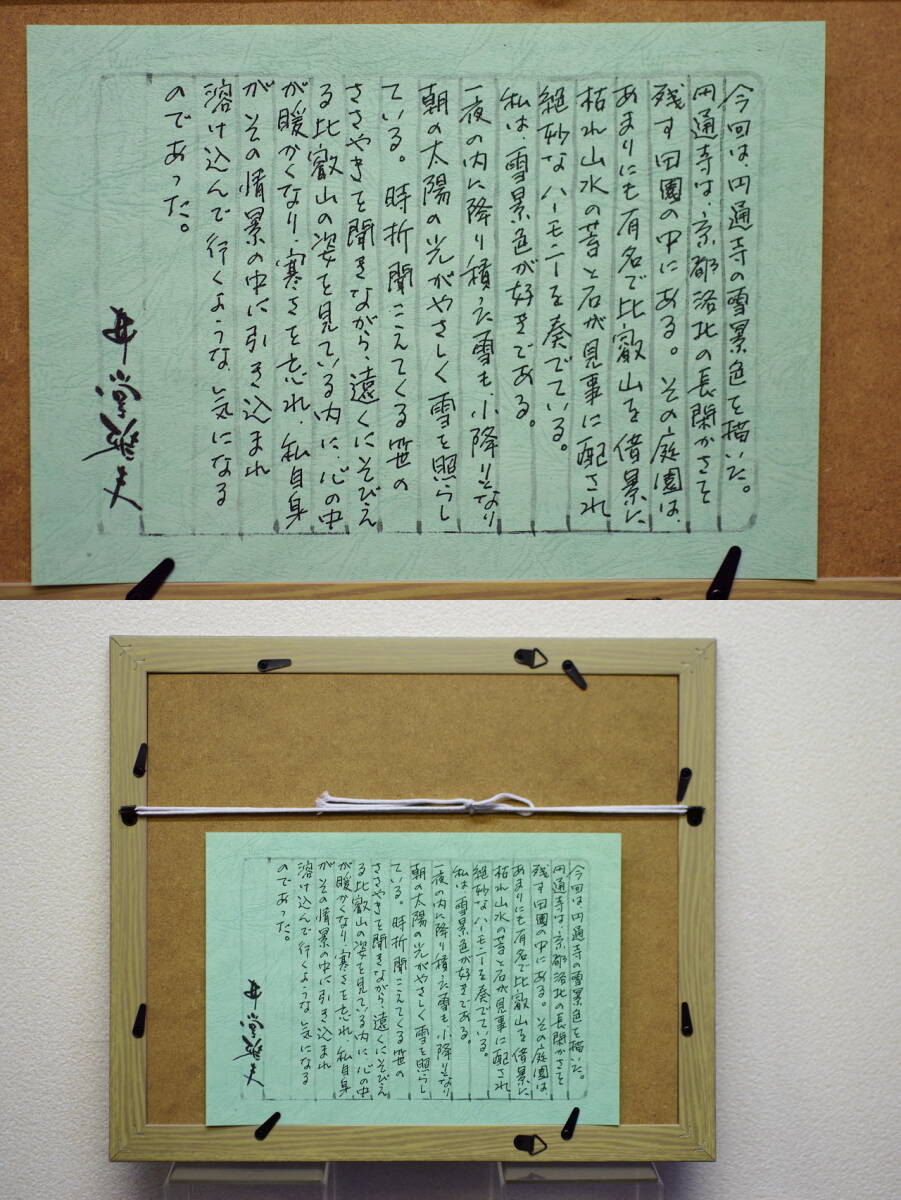 今回は、円通寺の雪景色を描いた。
円通寺は、京都洛北の長閑かさを
残す田園の中にある。その庭園は、
あまりにも有名で比叡山を借景に
枯れ山水の苔と石が見事に配され
絶妙なハーモニーを奏でている。
私は、雪景色が好きである。
一夜の内に降り積った雪も、小降りとなり
朝の太陽の光がやさしく雪を照らし
ている。時折聞こえてくる笹の
ささやきを聞きながら、遠くにそびえ
る比叡山の姿を見ている内に、心の中
が暖かくなり、寒さを忘れ、私自身
がその情景の中に引き込まれ
溶け込んで行くような気になる
のであった。
井堂雅夫
今回は、円通寺の雪景色を描いた。
円通寺は、京都洛北の長閑かさを
残す田園の中にある。その庭園は、
あまりにも有名で比叡山を借景に
枯れ山水の苔と石が見事に配され
絶妙なハーモニーを奏でている。
私は、雪景色が好きである。
一夜の内に降り積った雪も、小降りとなり
朝の太陽の光がやさしく雪を照らし
ている。時折聞こえてくる笹の
ささやきを聞きながら、遠くにそびえ
る比叡山の姿を見ている内に、心の中
が暖かくなり、寒さを忘れ、私自身
がその情景の中に引き込まれ
溶け込んで行くような気になる
のであった。
井堂雅夫